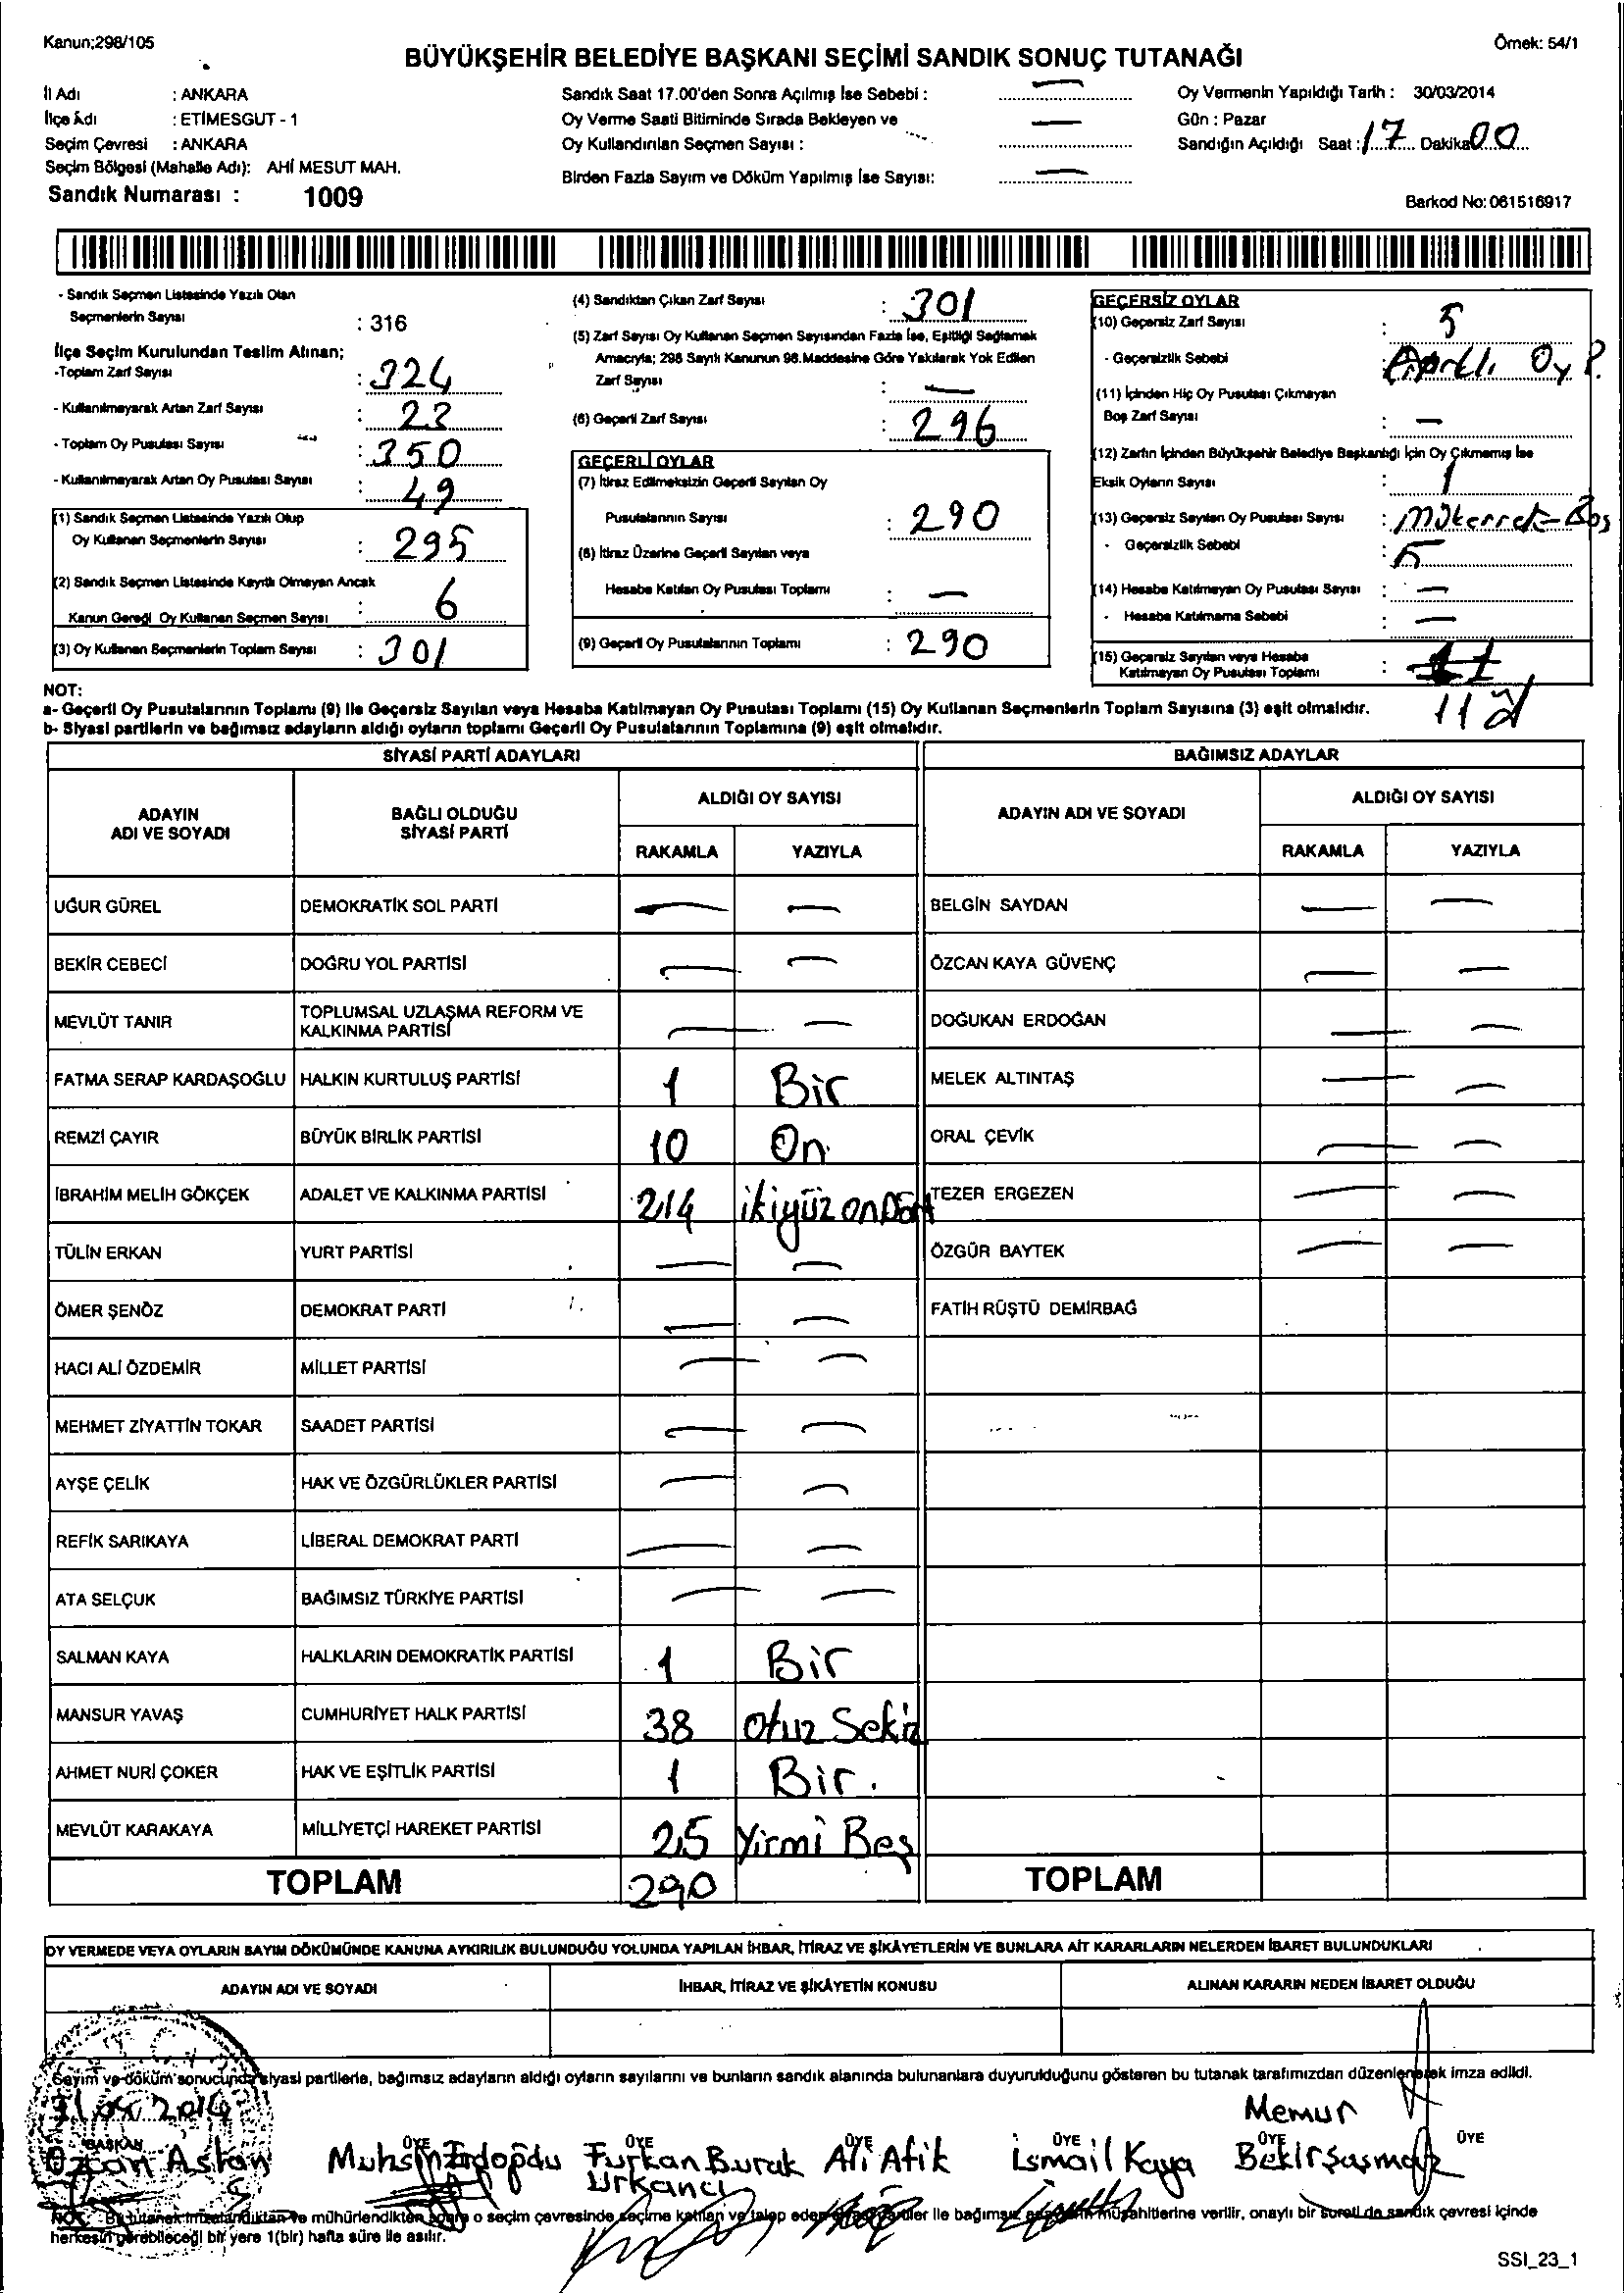 Kanun;298/105
Örnek: 54/1
BÜYÜKŞEHİR BELEDİYE BAŞKANI SEÇİMİ SANDIK SONUÇ TUTANAĞI
İl Adı : ANKARA
İlçe Adı : ETİMESGUT - 1
Seçim Çevresi : ANKARA
Seçim Bölgesi (Mahalle Adı): AHİ MESUT MAH.
Sandık Numarası : 1009
Sandık Saat 17.00'den Sonra Açılmış İse Sebebi : —
Oy Verme Saati Bitiminde Sırada Bekleyen ve —
Oy Kullandırılan Seçmen Sayısı :
Birden Fazla Sayım ve Döküm Yapılmış İse Sayısı: —
Oy Vermenin Yapıldığı Tarih : 30/03/2014
Gün : Pazar
Sandığın Açıldığı Saat : 17 Dakika 00
Barkod No: 061516917
- Sandık Seçmen Listesinde Yazılı Olan
Seçmenlerin Sayısı : 316
İlçe Seçim Kurulundan Teslim Alınan;
-Toplam Zarf Sayısı : 324
- Kullanılmayarak Artan Zarf Sayısı : 23
- Toplam Oy Pusulası Sayısı : 350
- Kullanılmayarak Artan Oy Pusulası Sayısı : 49
(1) Sandık Seçmen Listesinde Yazılı Olup
Oy Kullanan Seçmenlerin Sayısı : 295
(2) Sandık Seçmen Listesinde Kayıtlı Olmayan Ancak
Kanun Gereği Oy Kullanan Seçmen Sayısı : 6
(3) Oy Kullanan Seçmenlerin Toplam Sayısı : 301
(4) Sandıktan Çıkan Zarf Sayısı : 301
(5) Zarf Sayısı Oy Kullanan Seçmen Sayısından Fazla İse, Eşitliği Sağlamak
Amacıyla; 298 Sayılı Kanunun 98.Maddesine Göre Yakılarak Yok Edilen
Zarf Sayısı : —
(6) Geçerli Zarf Sayısı : 296
GEÇERLİ OYLAR
(7) İtiraz Edilmeksizin Geçerli Sayılan Oy
Pusulalarının Sayısı : 290
(8) İtiraz Üzerine Geçerli Sayılan veya
Hesaba Katılan Oy Pusulası Toplamı : —
(9) Geçerli Oy Pusulalarının Toplamı : 290
GEÇERSİZ OYLAR
(10) Geçersiz Zarf Sayısı : 5
- Geçersizlik Sebebi : Oy P.
(11) İçinden Hiç Oy Pusulası Çıkmayan
Boş Zarf Sayısı : —
(12) Zarfın İçinden Büyükşehir Belediye Başkanlığı İçin Oy Çıkmamış İse
Eksik Oyların Sayısı : 1
(13) Geçersiz Sayılan Oy Pusulası Sayısı : Mükerrer-Boş
- Geçersizlik Sebebi : 5
(14) Hesaba Katılmayan Oy Pusulası Sayısı : —
- Hesaba Katılmama Sebebi : —
(15) Geçersiz Sayılan veya Hesaba
Katılmayan Oy Pusulası Toplamı : 11
11
NOT:
a- Geçerli Oy Pusulalarının Toplamı (9) ile Geçersiz Sayılan veya Hesaba Katılmayan Oy Pusulası Toplamı (15) Oy Kullanan Seçmenlerin Toplam Sayısına (3) eşit olmalıdır.
b- Siyasi partilerin ve bağımsız adayların aldığı oyların toplamı Geçerli Oy Pusulalarının Toplamına (9) eşit olmalıdır.
SİYASİ PARTİ ADAYLARI
BAĞIMSIZ ADAYLAR
ADAYIN ADI VE SOYADI
BAĞLI OLDUĞU SİYASİ PARTİ
ALDIĞI OY SAYISI
RAKAMLA YAZIYLA
ADAYIN ADI VE SOYADI
ALDIĞI OY SAYISI
RAKAMLA YAZIYLA
UĞUR GÜREL DEMOKRATİK SOL PARTİ — — BELGİN SAYDAN — —
BEKİR CEBECİ DOĞRU YOL PARTİSİ — — ÖZCAN KAYA GÜVENÇ — —
MEVLÜT TANIR TOPLUMSAL UZLAŞMA REFORM VE KALKINMA PARTİSİ — — DOĞUKAN ERDOĞAN — —
FATMA SERAP KARDAŞOĞLU HALKIN KURTULUŞ PARTİSİ 1 Bir MELEK ALTINTAŞ — —
REMZİ ÇAYIR BÜYÜK BİRLİK PARTİSİ 10 On ORAL ÇEVİK — —
İBRAHİM MELİH GÖKÇEK ADALET VE KALKINMA PARTİSİ 214 ikiyüz onDört TEZER ERGEZEN — —
TÜLİN ERKAN YURT PARTİSİ — — ÖZGÜR BAYTEK — —
ÖMER ŞENÖZ DEMOKRAT PARTİ — — FATİH RÜŞTÜ DEMİRBAĞ
HACI ALİ ÖZDEMİR MİLLET PARTİSİ — —
MEHMET ZİYATTİN TOKAR SAADET PARTİSİ — —
AYŞE ÇELİK HAK VE ÖZGÜRLÜKLER PARTİSİ — —
REFİK SARIKAYA LİBERAL DEMOKRAT PARTİ — —
ATA SELÇUK BAĞIMSIZ TÜRKİYE PARTİSİ — —
SALMAN KAYA HALKLARIN DEMOKRATİK PARTİSİ 1 Bir
MANSUR YAVAŞ CUMHURİYET HALK PARTİSİ 38 Otuz Sekiz
AHMET NURİ ÇOKER HAK VE EŞİTLİK PARTİSİ 1 Bir.
MEVLÜT KARAKAYA MİLLİYETÇİ HAREKET PARTİSİ 25 Yirmi Beş
TOPLAM 290 TOPLAM
OY VERMEDE VEYA OYLARIN SAYIM DÖKÜMÜNDE KANUNA AYKIRILIK BULUNDUĞU YOLUNDA YAPILAN İHBAR, İTİRAZ VE ŞİKÂYETLERİN VE BUNLARA AİT KARARLARIN NELERDEN İBARET BULUNDUKLARI
ADAYIN ADI VE SOYADI İHBAR, İTİRAZ VE ŞİKÂYETİN KONUSU ALINAN KARARIN NEDEN İBARET OLDUĞU
Sayım ve döküm sonucunda siyasi partilerle, bağımsız adayların aldığı oyların sayılarını ve bunların sandık alanında bulunanlara duyurulduğunu gösteren bu tutanak tarafımızdan düzenlenerek imza edildi.
2014
Memur
BAŞKAN ÜYE ÜYE ÜYE ÜYE ÜYE ÜYE
Özcan Aslan Muhsin Erdoğdu Furkan Burak Ali Atik İsmail Kaya Bekir Şaşmaz
Urkancı
NOT: Bu tutanak imzalandıktan ve mühürlendikten sonra o seçim çevresinde seçime katılan ve talep eden siyasi partiler ile bağımsız adayların müşahitlerine verilir, onaylı bir sureti de sandık çevresi içinde
herkesin görebileceği bir yere 1(bir) hafta süre ile asılır.
SSI_23_1